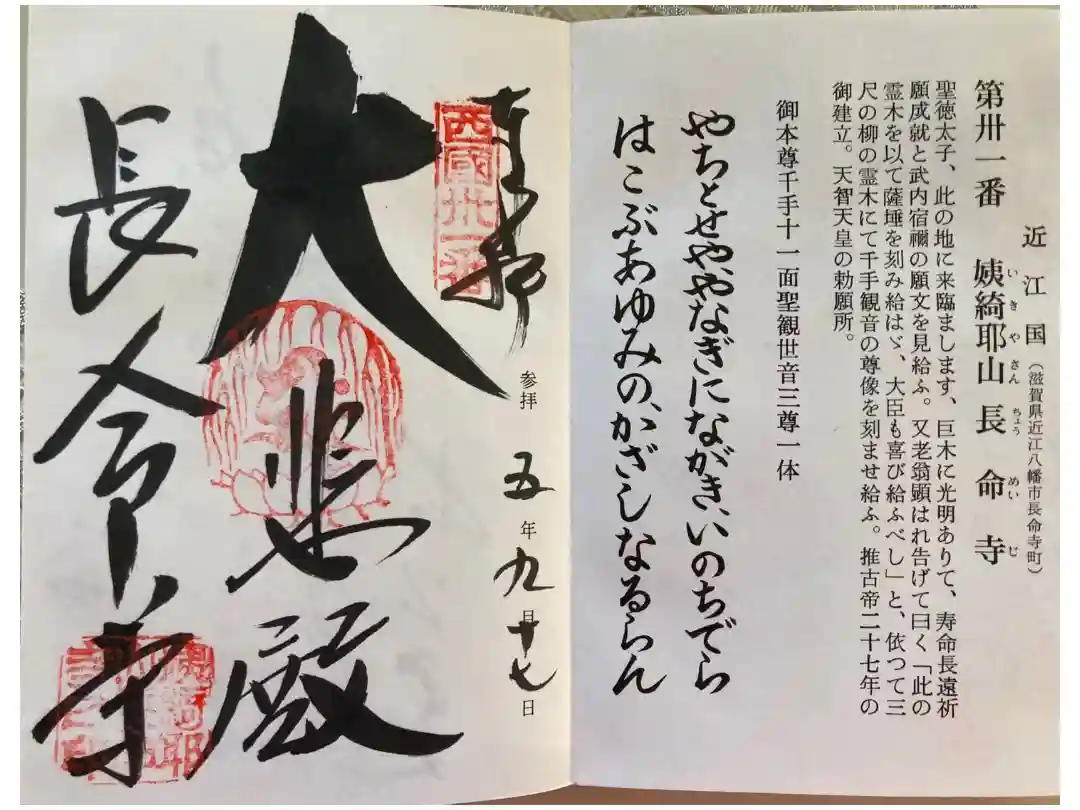 近江国（滋賀県近江八幡市長命寺町）
第卅一番 姨綺耶山長命寺
いきやさんちょうめいじ
聖徳太子、此の地に来臨まします、巨木に光明ありて、寿命長遠祈
願成就と武内宿禰の願文を見給ふ。又老翁顕はれ告げて曰く「此の
霊木を以て薩埵を刻み給はゞ、大臣も喜び給ふべし」と、依つて三
尺の柳の霊木にて千手観音の尊像を刻ませ給ふ。推古帝二十七年の
御建立。天智天皇の勅願所。
御本尊千手十一面聖観世音三尊一体
やちとせや、やなぎにながき、いのちでら
はこぶあゆみの、かざしなるらん
奉拝
西國卅一番
参拝 五年九月十七日
大悲殿
長命寺